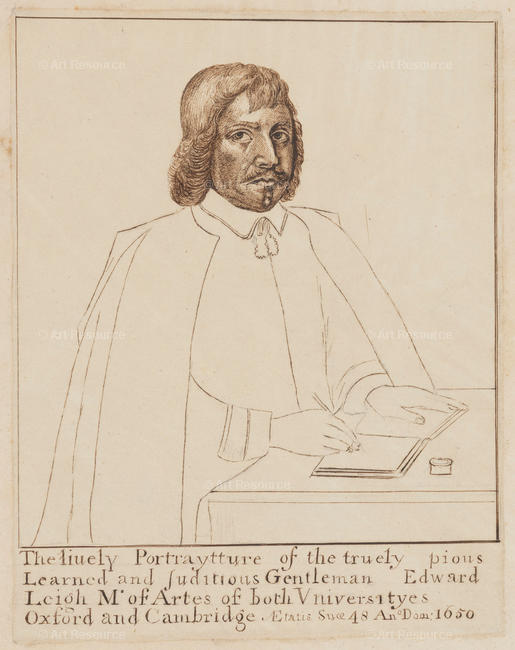 © Art Resource
© Art Resource
© Art Resource
© Art Resource
© Art Resource
The liuely Portraytture of the truely pious
Learned and Juditious Gentleman Edward
Leigh Mr of Artes of both Vniversityes
Oxford and Cambridge Ætatis Suæ 48 Ano Dom: 1650